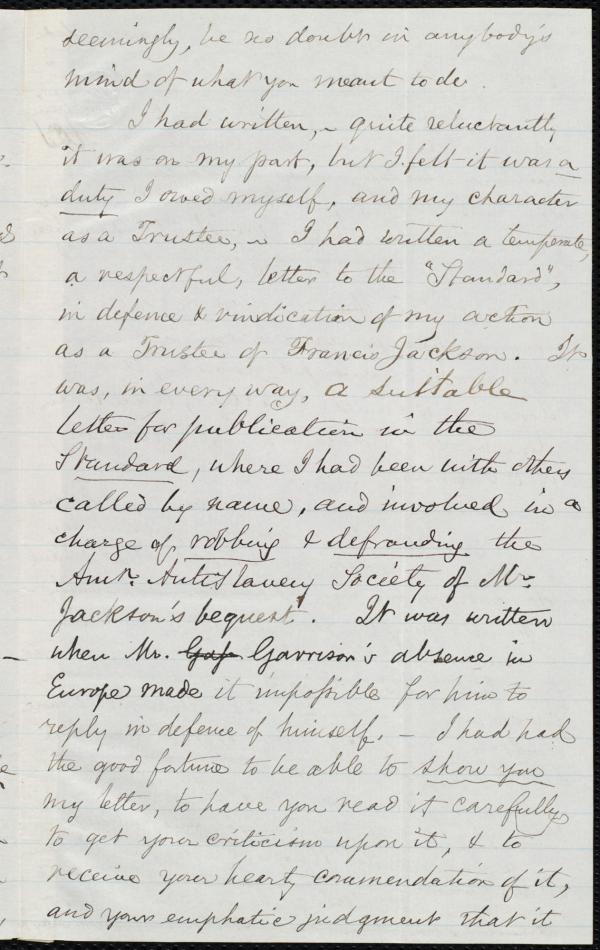 seemingly, be no doubt in anybody's
mind of what you meant to do.
I had written, ~ quite reluctantly
it was on my part, but I felt it was a
duty I owed myself, and my character
as a Trustee, ~ I had written a temperate,
a respectful, letter to the "Standard",
in defence & vindication of my action
as a Trustee of Francis Jackson. It
was, in every way, a suitable
letter for publication in the
Standard, where I had been with others
called by name, and involved in a
charge of robbing & defrauding the
Amn. Antislavery Society of Mr.
Jackson's bequest. It was written
when Mr. Gap Garrison's absence in
Europe made it impossible for him to
reply in defence of himself. — I had had
the good fortune to be able to show you
my letter, to have you read it carefully
to get your criticism upon it, & to
receive your hearty commendation of it,
and your emphatic judgment that it